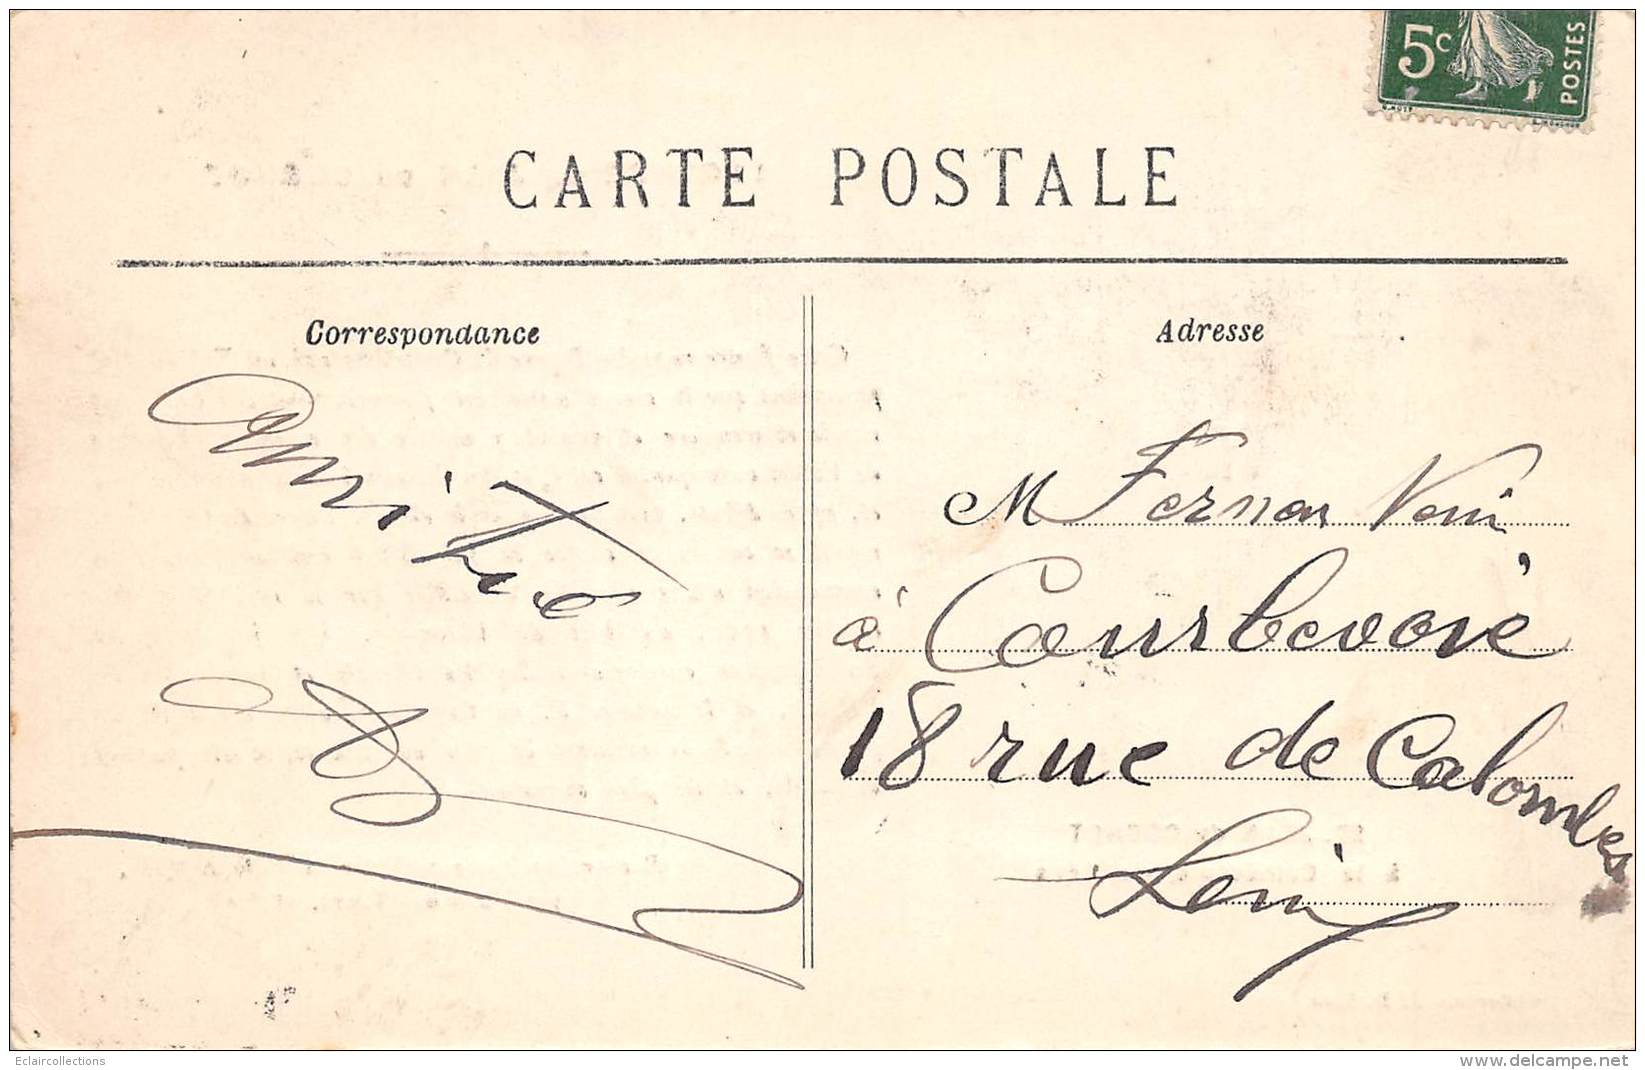 5c
POSTES
CARTE POSTALE
Correspondance
Adresse
Amitié
M Fernan
à Courbevoie
18 rue de Colombes
Eclaircollections
delcampe.net